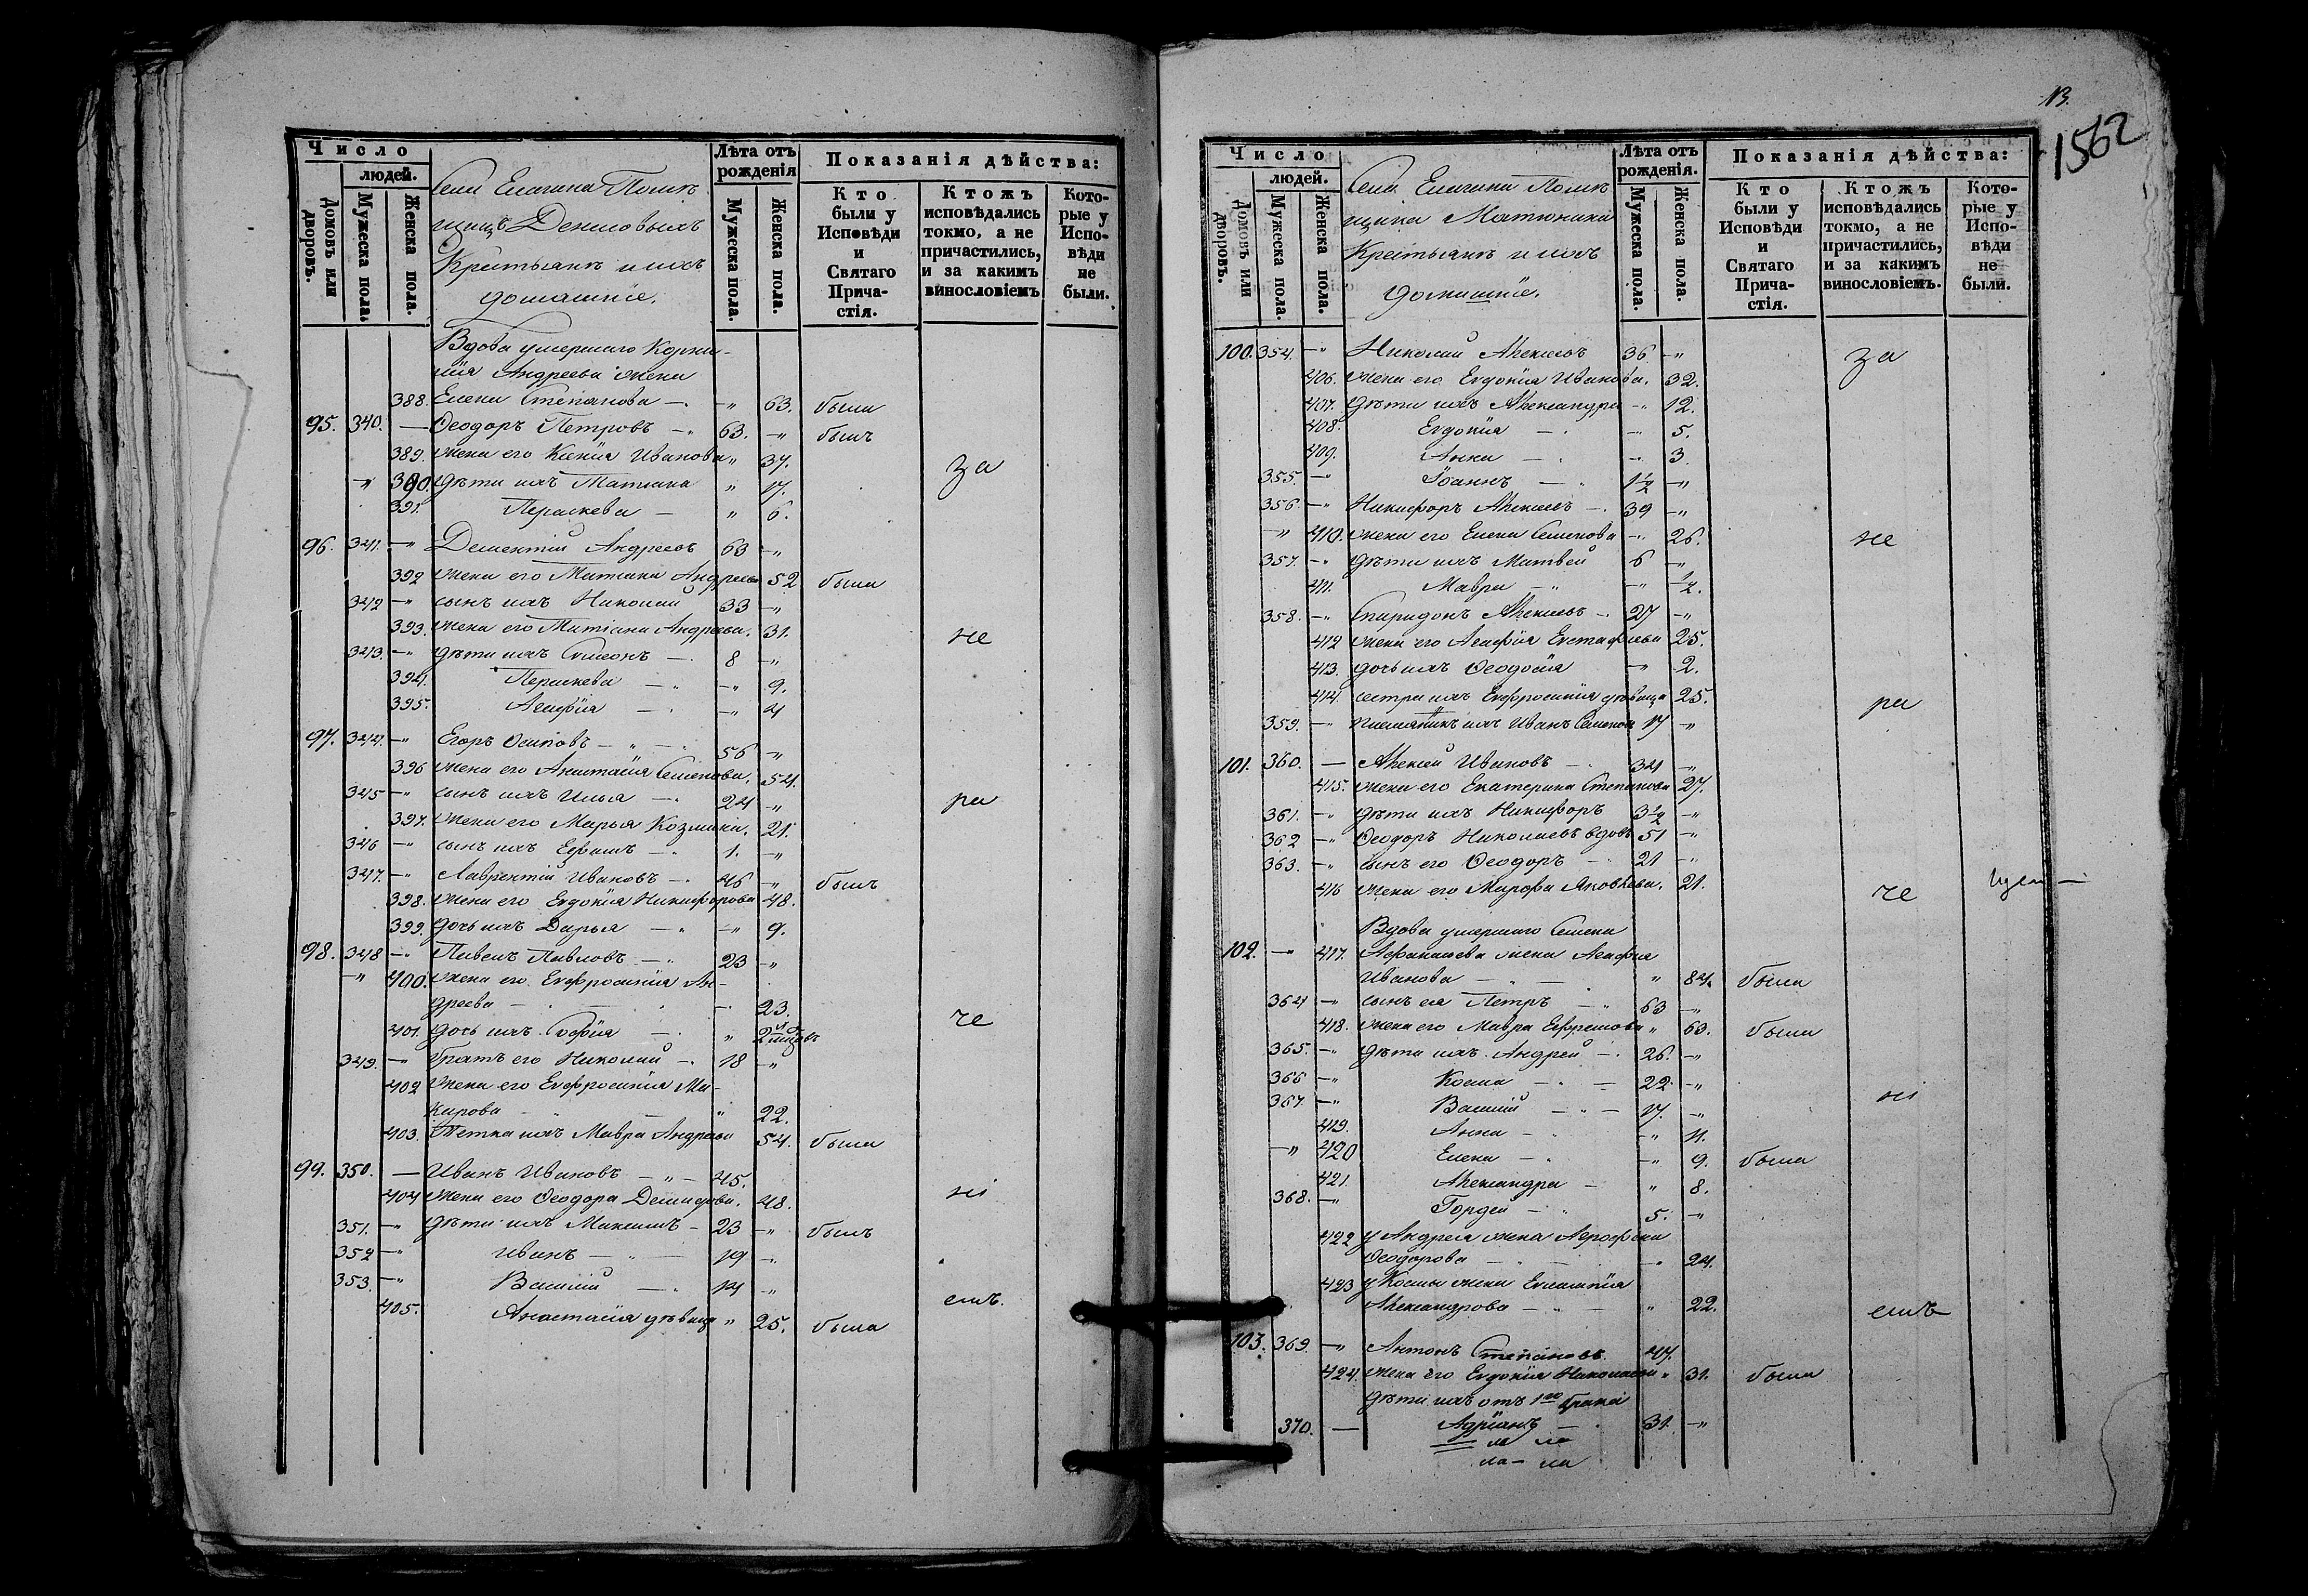 Число
людей.
Домовъ или дворовъ.
Мужеска пола.
Женска пола.
Села Елагина Помѣ
щицъ Демидовыхъ
Крестьянѣ и ихъ
домашніе.
Лѣта отъ рожденія
Мужеска пола.
Женска пола.
Показанія дѣйства:
Кто были у Исповѣди и Святаго Прича-стія.
Ктожъ исповѣдались токмо, а не причастились, и за какимъ винословіемъ
Кото-рые у Испо-вѣди не были.
Вдова умершаго
Андреева жена
388. Елена Степанова — " 63. была
95. 340. — Ѳеодоръ Петровъ — 63. — " былъ
389. жена его Ксенія Иванова " 37.
за
" 390. дѣти ихъ Татіана " 17.
391. Параскева — " 6.
96. 341. — " Дементій Андреевъ 63 — "
392 жена его Татіана Андреева 52 была
342 — " сынъ ихъ Николай 33 — "
393. жена его Татіана Андреева. 31.
не
343. — " дѣти ихъ Симеонъ — 8 — "
394. Параскева — " 9.
395. Агафія — " 4
97. 344. — " Егоръ Осиповъ — " — 56 — "
396 жена его Анастасія Семенова. 54.
345 — " сынъ ихъ Илья — 24 — "
ра
397. жена его Марья Козмина. 21.
346 — " сынъ ихъ Ефимъ — 1. — "
347. — " Лаврентій Ивановъ — 46 — " былъ
398. жена его Евдокія Никифорова 48.
399. дочь ихъ Дарья — " 9.
98. 348 — " Павелъ Павловъ — 23 — "
— " 400. жена его Евфросинія Ан-
дреева — 23.
че
401. дочь ихъ Софія — " 2
349. — братъ его Николай — 18 — "
402 жена его Евфросинія Ма-
карова — " 22.
403. Тетка ихъ Мавра Андреева 54. была
99. 350. — Иванъ Ивановъ — " — 45.
404 жена его Ѳеодора Демидова. 48.
ні
351. — " дѣти ихъ Максимъ — 23 — " былъ
352 — " Иванъ — 19 —
353. — " Василій — 14 — "
емъ.
405. Анастасія дѣвица " 25. была
13.
1562
Число
людей.
Домовъ или дворовъ.
Мужеска пола.
Женска пола.
Села Елагина Помѣ
щика Матюнина
Крестьянѣ и ихъ
домашніе.
Лѣта отъ рожденія.
Мужеска пола.
Женска пола.
Показанія дѣйства:
Кто были у Исповѣди и Святаго Прича-стія.
Ктожъ исповѣдались токмо, а не причастились, и за какимъ винословіемъ.
Кото-рые у Испо-вѣди не были.
100. 354. — " Николай Алексѣевъ 36 — "
за
406. жена его Евдокія Иванова. 32.
407. дѣти ихъ Александра — " 12.
408. Евдокія — " 5.
409. Анна — " 3.
355. — " Іоаннъ — 1½ — "
356. — " Никифоръ Алексѣевъ — 39 — "
— " 410. жена его Елена Семенова — " 26.
не
357. — " дѣти ихъ Матвей 6 — "
411. Мавра — " — " ½.
358. — " Спиридонъ Алексѣевъ — 27 — "
412 жена его Агафія Евстафьева 25.
413. дочь ихъ Ѳеодосія — " 2.
414. сестра ихъ Евфросинія дѣвица 25.
ра
359. — " племянникъ ихъ Иванъ Семеновъ 17 — "
101. 360. — Алексѣй Ивановъ — 34 — "
415. жена его Екатерина Степанова 27.
361. — " дѣти ихъ Никифоръ 3½ — "
362 — " Ѳеодоръ Николаевъ вдовъ 51 — "
363. — " сынъ его Ѳеодоръ — 21 — "
416 жена его Марфа Яковлева. 21.
че
Вдова умершаго Семена
102. — " 417. Афанасьева жена Агафія
Иванова — " 84. была
364 — " сынъ ея Петръ — 63 — "
418. жена его Мавра Ефремова " 63. была
365. — " дѣти ихъ Андрей — 26. — "
366 — " Косма — 22. — "
ні
367. — " Василій — " — 17. — "
419. Анна — — " 11.
— " 420 Елена — — " 9. была
421. Александра — " 8.
368. — " Гордей — " 5. — "
422 у Андрея жена Агрофена
Ѳеодорова — — " 24.
423 у Космы жена Евлампія
Александрова — " — " 22.
емъ
103. 369. — " Антонъ Степановъ. 47.
424. жена его Евдокія Николаева " 31. была
дѣти ихъ отъ 1го брака
370. — Адріанъ — 31. — "